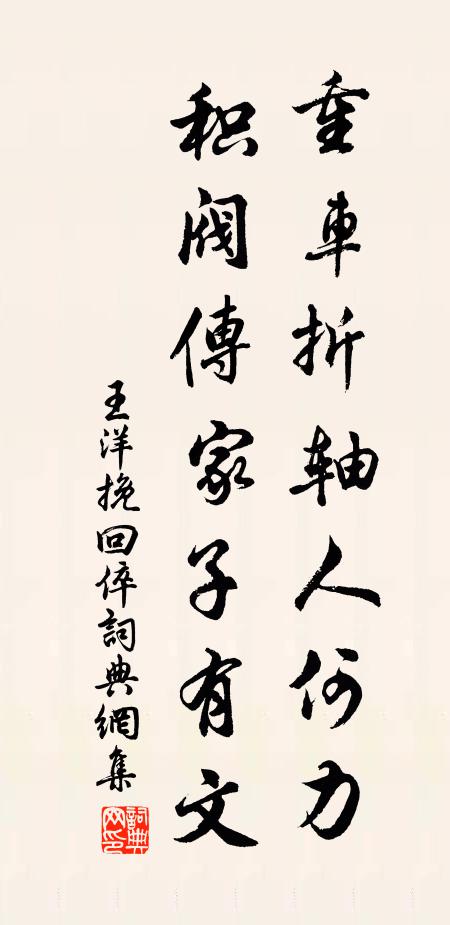 重車折軸人何力
积閥傳家子有文
王洋挽回倅詞典網集
詞典網印